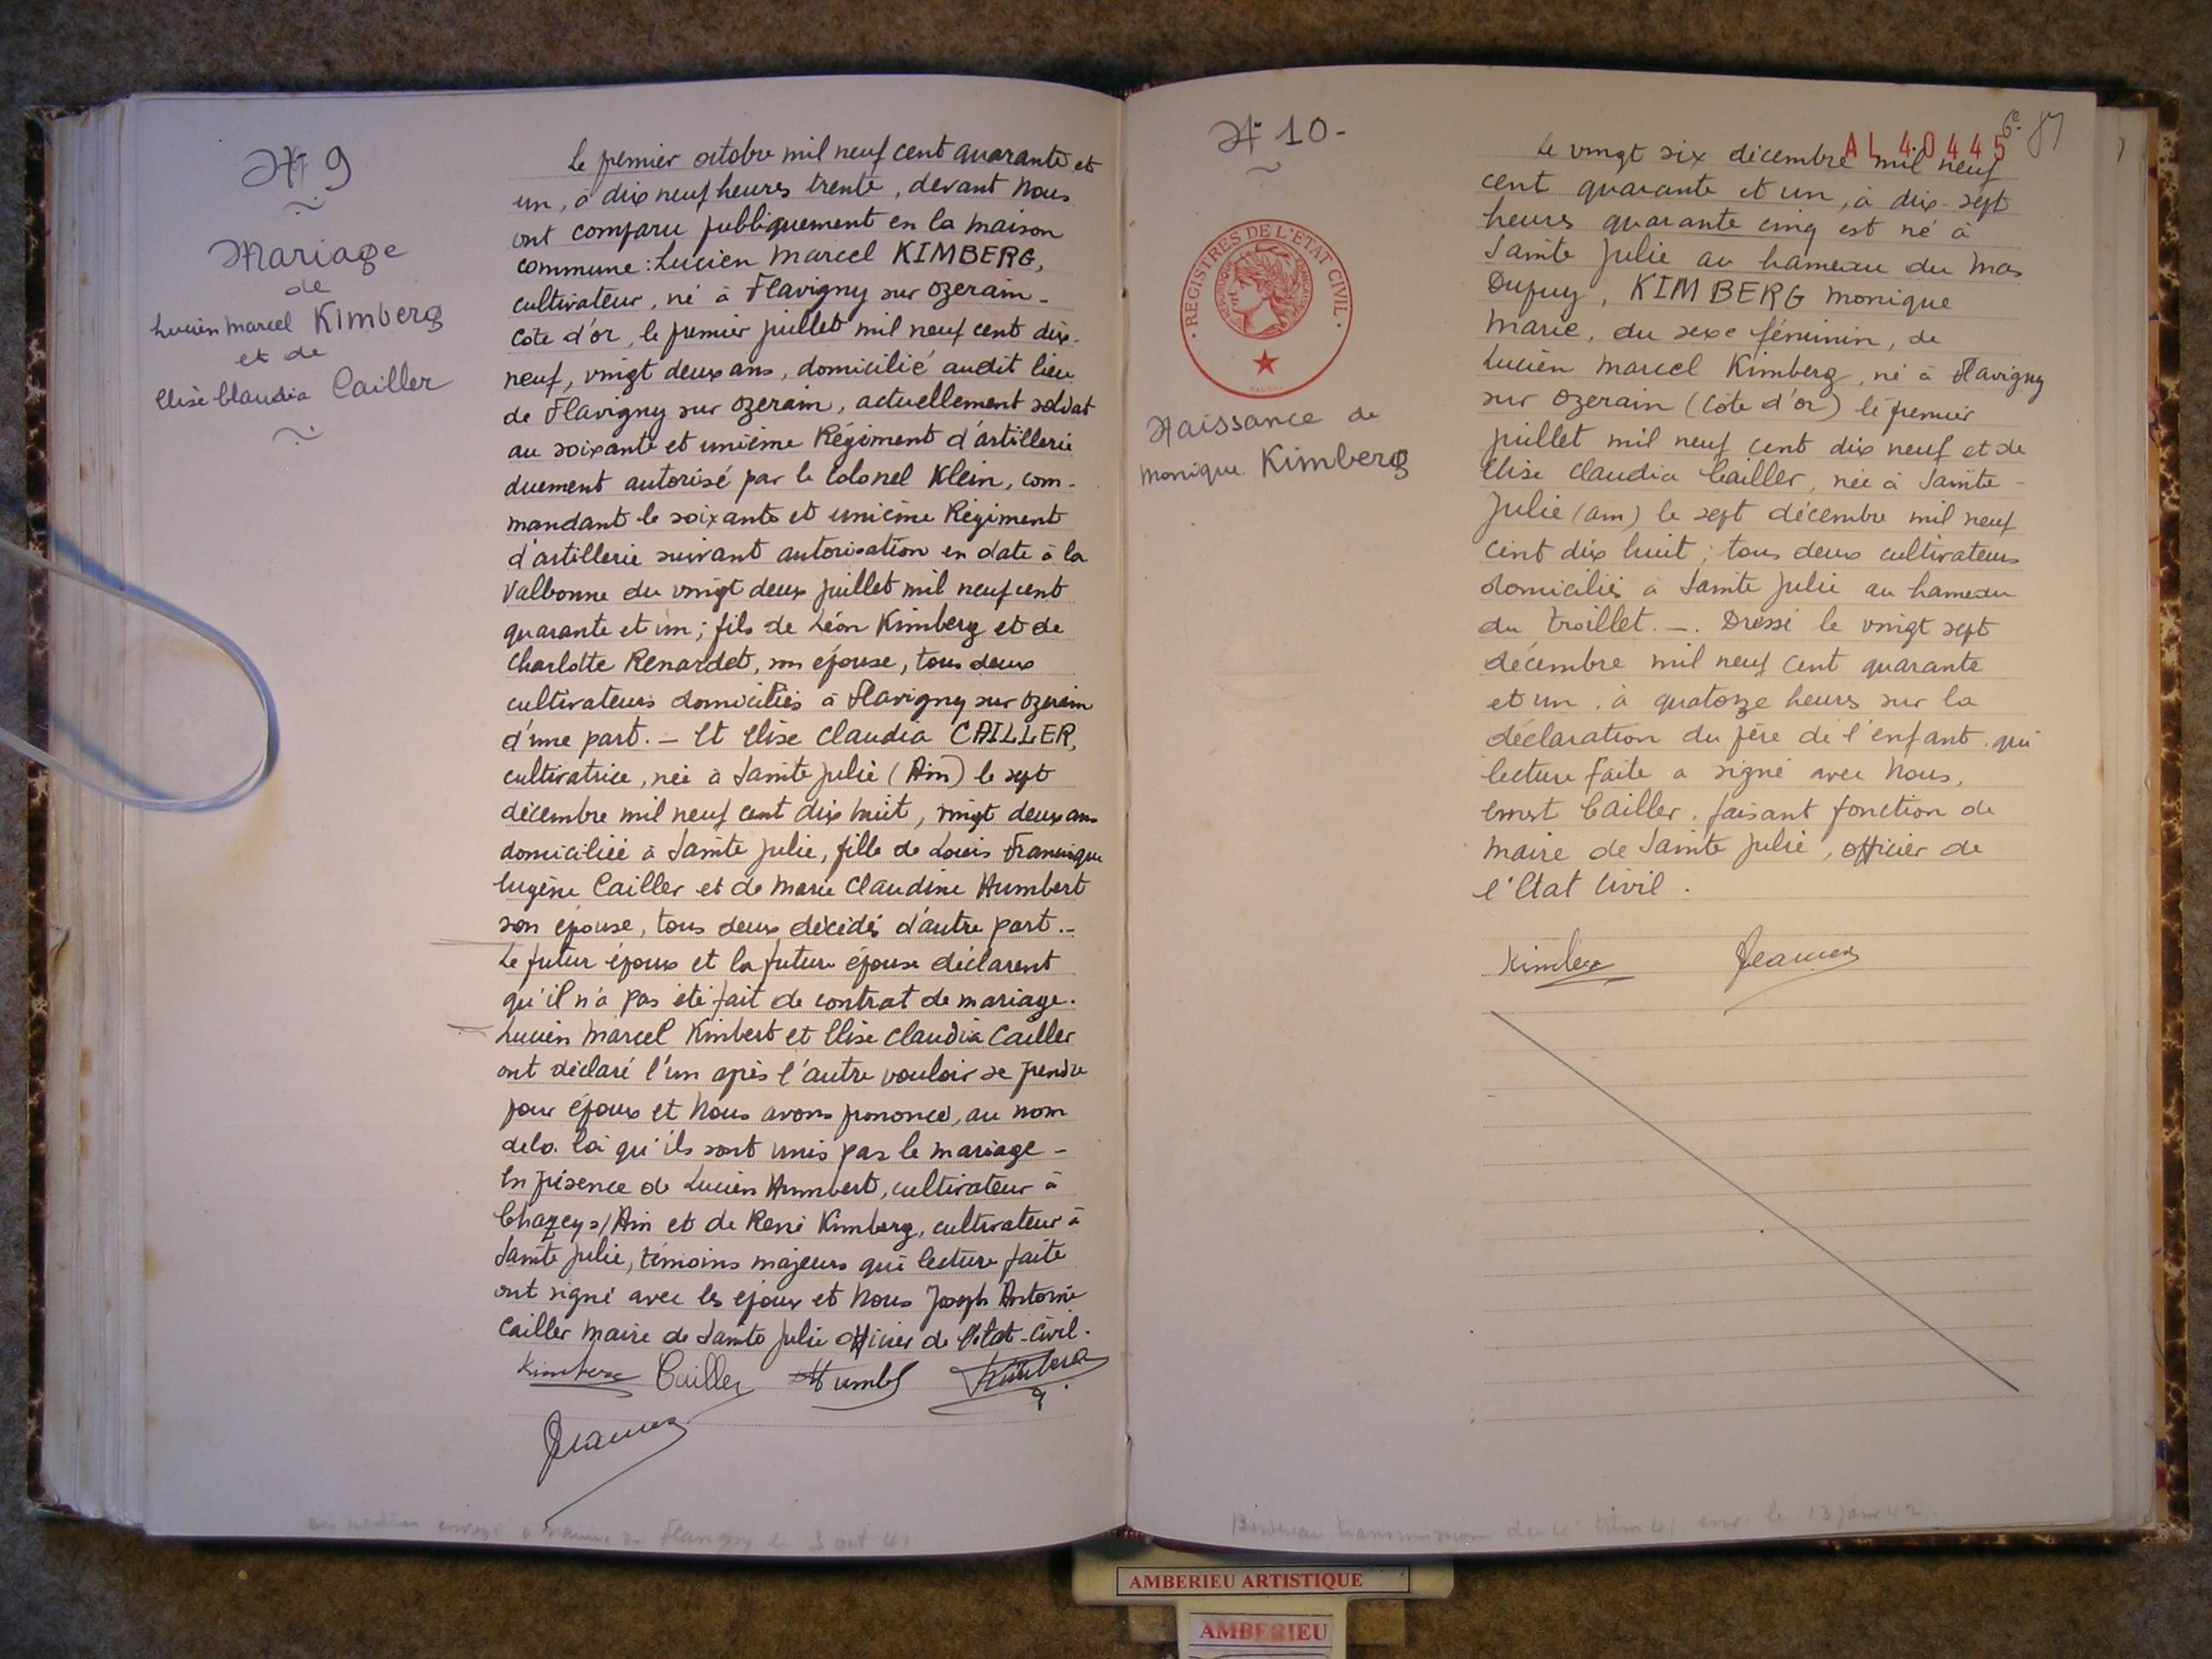 N° 9
Mariage
de
Lucien Marcel Kimberg
et de
Elise Claudia Cailler
Le premier octobre mil neuf cent quarante et
un, à dix neuf heures trente, devant Nous
ont comparu publiquement en la maison
commune : Lucien Marcel KIMBERG,
cultivateur, né à Flavigny sur Ozerain -
Côte d'or, le premier juillet mil neuf cent dix-
neuf, vingt deux ans, domicilié audit lieu
de Flavigny sur Ozerain, actuellement soldat
au soixante et unième Régiment d'artillerie
duement autorisé par le Colonel Klein, com-
mandant le soixante et unième Régiment
d'artillerie suivant autorisation en date à la
Valbonne du vingt deux juillet mil neuf cent
quarante et un ; fils de Léon Kimberg et de
Charlotte Renardet, son épouse, tous deux
cultivateurs domiciliés à Flavigny sur Ozerain
d'une part. - Et Elise Claudia CAILLER,
cultivatrice, née à Sainte Julie (Ain) le sept
décembre mil neuf cent dix huit, vingt deux ans
domiciliée à Sainte Julie, fille de Louis Francisque
Eugène Cailler et de Marie Claudine Humbert
son épouse, tous deux décédés d'autre part.-
Le futur époux et la future épouse déclarent
qu'il n'a pas été fait de contrat de mariage.
Lucien Marcel Kimbert et Elise Claudia Cailler
ont déclaré l'un après l'autre vouloir se prendre
pour époux et Nous avons prononcé, au nom
de la loi qu'ils sont unis par le mariage -
En présence de Lucien Humbert, cultivateur à
Chazey s/Ain et de René Kimberg, cultivateur à
Sainte Julie, témoins majeurs qui lecture faite
ont signé avec les époux et Nous Joseph Antoine
Cailler Maire de Sainte Julie officier de l'Etat-Civil.
Kimberg Cailler Humbert Kimberg
N° 10 -
REGISTRES DE L'ETAT CIVIL
Naissance de
Monique Kimberg
6e 87
AL 40445
Le vingt six décembre mil neuf
cent quarante et un, à dix-sept
heures quarante cinq est né à
Sainte Julie au hameau du Mas
Dupuy, KIMBERG Monique
Marie, du sexe féminin, de
Lucien Marcel Kimberg, né à Flavigny
sur Ozerain (Côte d'or) le premier
juillet mil neuf cent dix neuf et de
Elise Claudia Cailler, née à Sainte -
Julie (Ain) le sept décembre mil neuf
cent dix huit, tous deux cultivateurs
domiciliés à Sainte Julie au hameau
du Troillet. -. Dressé le vingt sept
décembre mil neuf cent quarante
et un, à quatorze heures sur la
déclaration du père de l'enfant qui
lecture faite a signé avec Nous,
Ernest Cailler, faisant fonction de
Maire de Sainte Julie, officier de
l'Etat Civil.
Kimberg
Bordereau transmission du 4e trim 41 env. le 13 janv 42.
AMBERIEU ARTISTIQUE
AMBERIEU